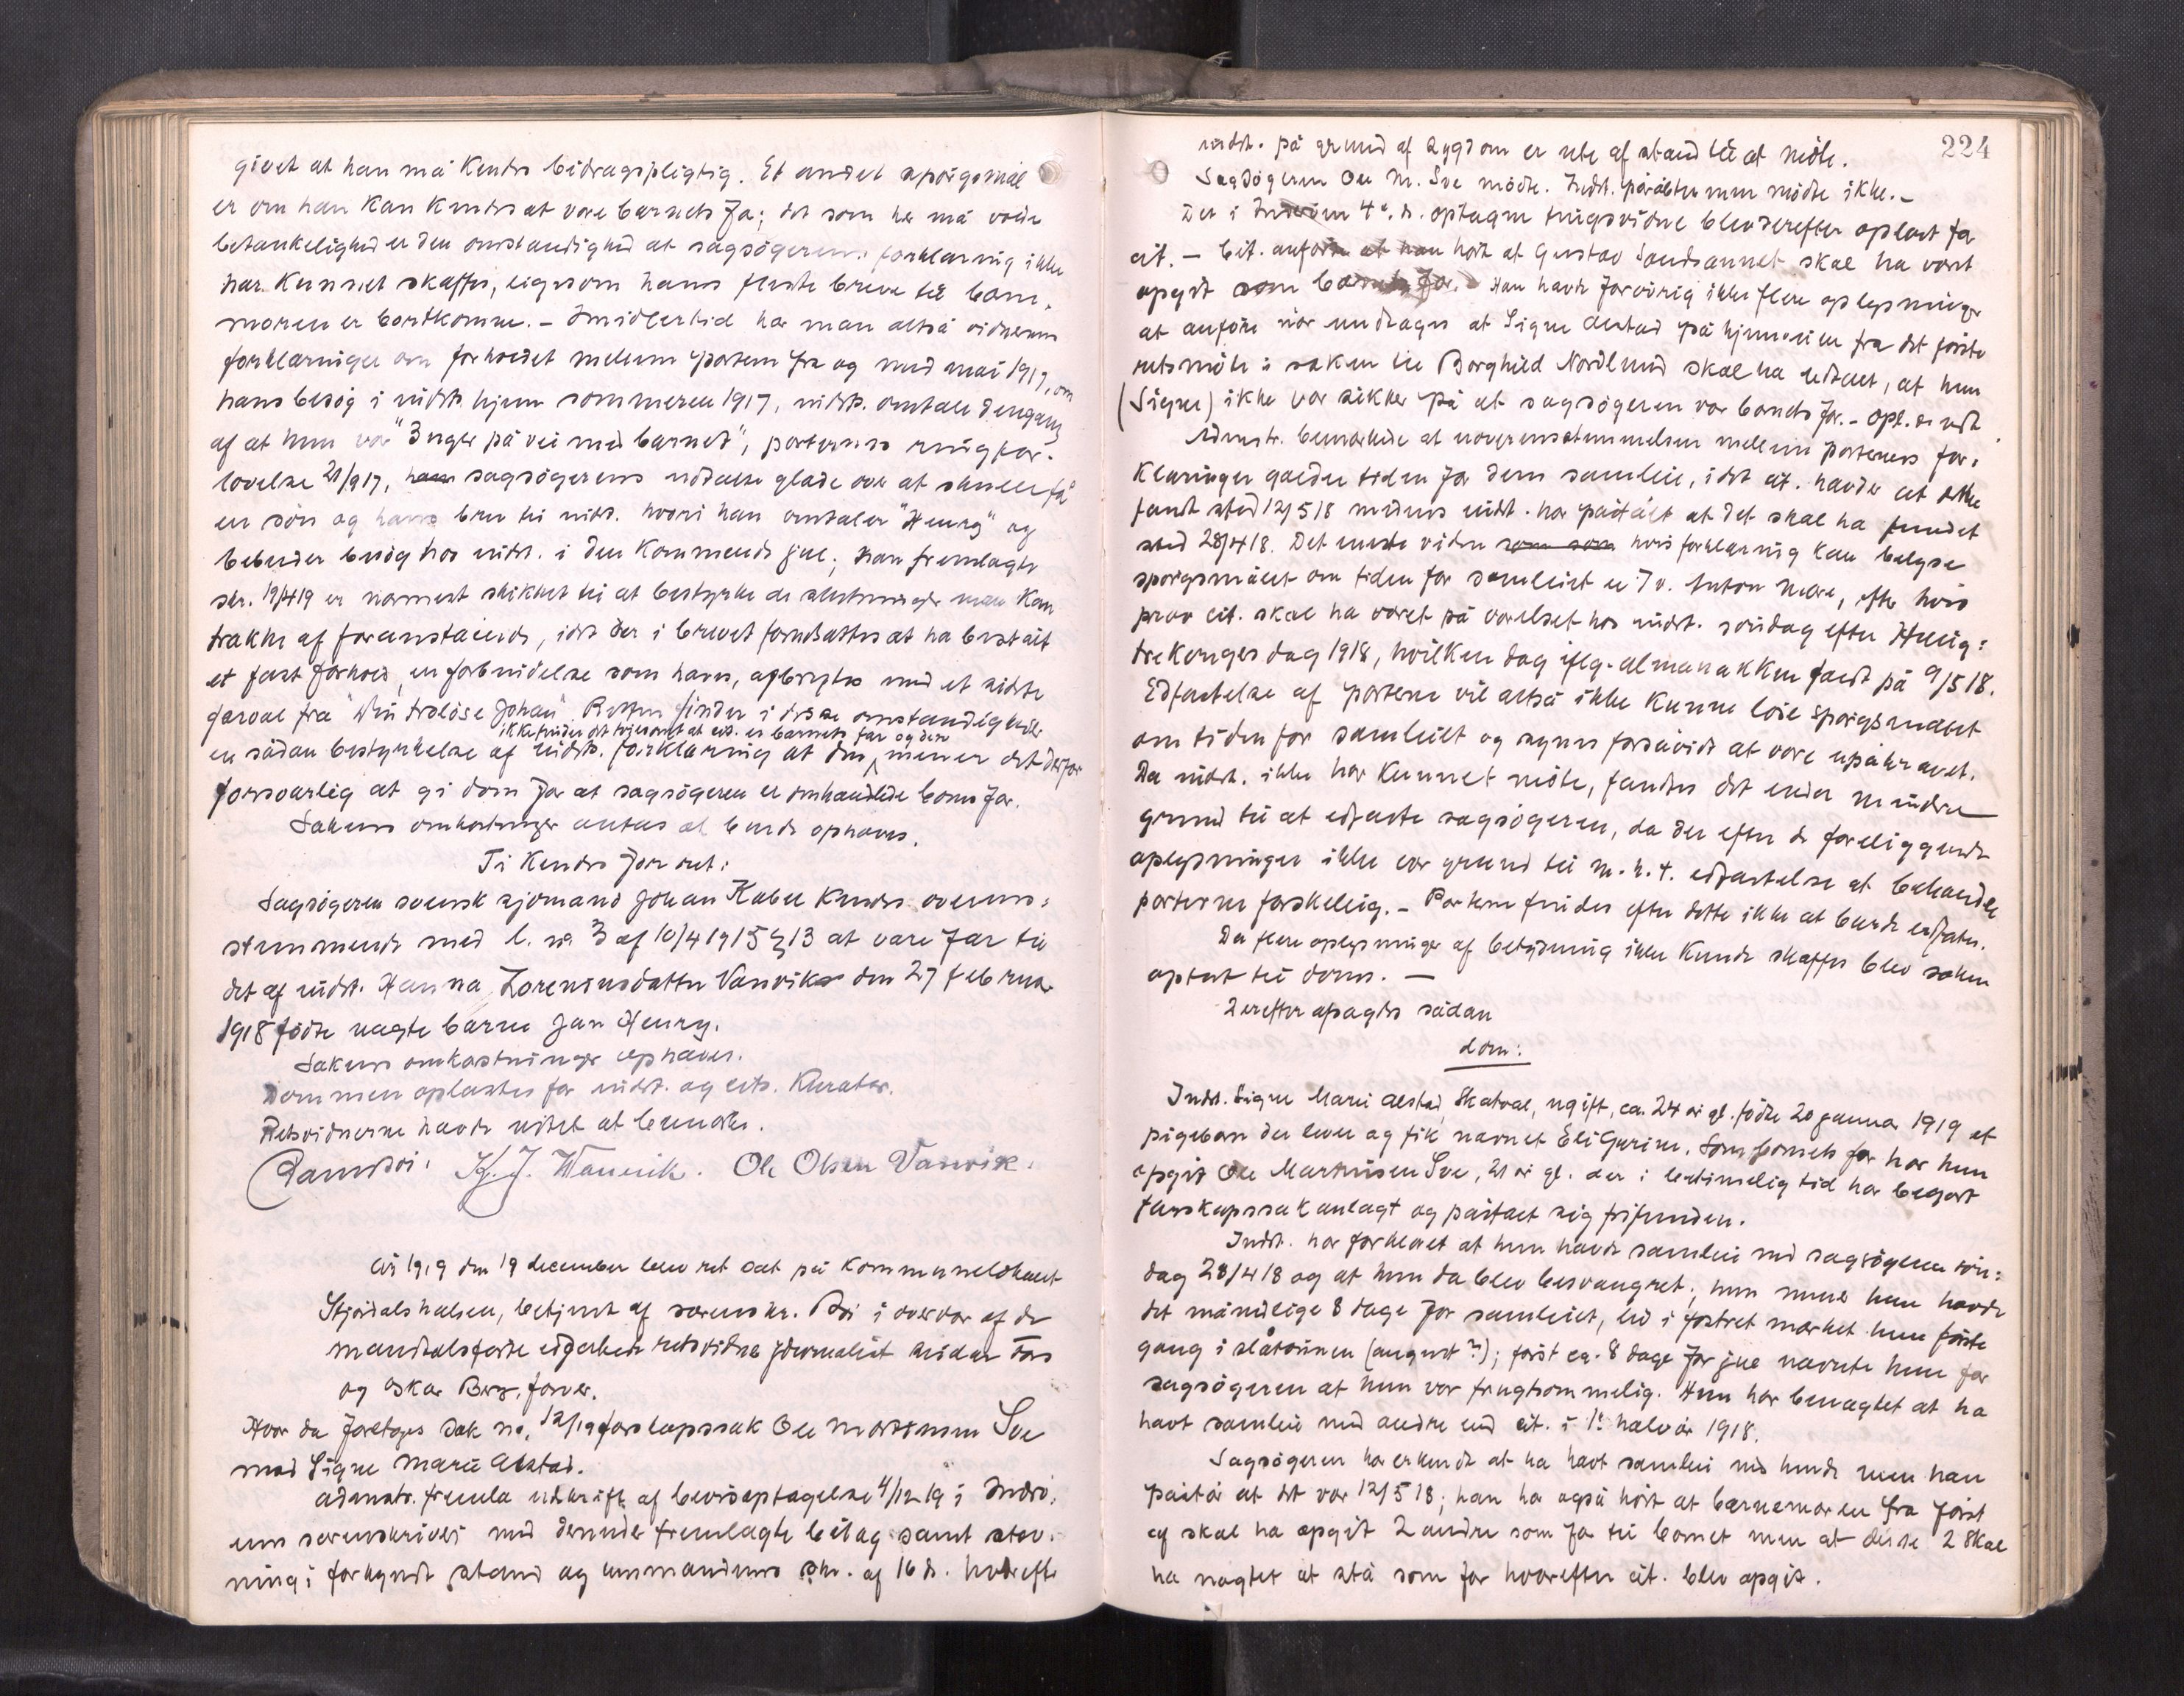 givet at han må kendes bidragspligtig. Et andet spörgsmål
er om han kan kendes at være barnets far; det som her må volde
betænkelighed er den omstændighed at sagsögerens forklaring ikke
har kunnet skaffes, ligesom hans fleste breve til barne-
moren er bortkomne. – Imidlertid har man altså vidnernes
forklaringer om forholdet mellem parterne fra og med mai 1917, om
hans besög i indst. hjem sommeren 1917, indst. omtale dengang
af at hun var "3 uger på vei med barnet", parternes ringfor-
lovelse 21/917, sagsögerens udtalelse glæde over at skulle få
en sön og hans brev til indst. hvori han omtaler "Henry" og
bebuder besög hos indst. i den kommende jul; Han fremlagte
skr. 19/419 er nærmest skikket til at bestyrke de slutninger man kan
trække af foranstående, idet der i brevet forudsættes at ha bestått
et fast forhold, en forbindelse som hans, afbrytes med et sidste
farvel fra "din trolöse Johan". Retten finder i disse omstændigheter
ikke finder det tvilsomt at cit. er barnets far og den
en sådan bestyrkelse af indst. forklaring at den mener det derfor
forsvarlig at gi dom for at sagsögeren er omhandlede barns far.
Sakens omkostninger antas at burde ophæves.
Ti kendes for ret:
Sagsögeren svensk sjömand Johan Kabel kendes overens-
stemmende med l. no 3 af 10/4 1915 § 13 at være far til
det af indst. Hanna Zoreninsdatter Vanvik den 27 februar
1918 födte uægte barn Jan Henry.
Sakens omkostninger ophæves.
Dommen oplæstes for indst. og cits. kurator.
Retsvidnerne havde intet at bemerke.
K. J. Wannik. Ole Olsen Vanvik.
År 1919 den 19 december blev ret sat på kommunelokalet
Stjördalshalsen, betjent af sorenskr. Bói i overvær af de
mandtalsförte edfæstede retsvidne journalist Reidar Ås
og Oskar Berg, farver.
Hvor da foretoges sak no. 12/19 farskapssak Ole Martinsen Sve
mod Signe Marie Alstad.
Admstr. fremla utskrift af bevisoptagelse 4/12 19 i Inderö-
ens sorenskriveri med derunder fremlagte bilag samt stev-
ning i forkyndt stand og lensmandens skr. af 16 ds. hvorefter
224
indst. på grund af sygdom er ute af stand til at möte.
Sagsögeren Ole M. Sve mödte. Indst. påråbt men mödte ikke. –
Det i Inderöen 4. ds. optagne tingsvidne blev derefter oplæst for
cit. – Cit. anförte at han hört at Gustav Sandsaunet skal ha vært
opgit som barnets far. Han havde forövrig ikke flere oplysninger
at anföre når undtages at Signe Alstad på hjemveien fra det förste
retsmöte i saken til Borghild Nordlund skal ha udtalt, at hun
(Signe) ikke var sikker på at sagsögeren var barnets far. – Opl. og vedt.
Admstr. bemerkede at uoverensstemmelsen mellem parternes for-
klaringer gælder tiden for deres samleie, idet cit. hævder at dette
fandt sted 12/5 18 medens indst. har påstået at det skal ha fundet
sted 28/4 18. Det eneste vidne hvis forklaring kan belyse
spörgsmålet om tiden for samleiet er 7 v. Anton Mære, efter hvis
prov cit. skal ha været på værelset hos indst. söndag efter Hellig-
trekongersdag 1918, hvilken dag iflg. almanakken faldt på 9/5 18.
Edfæstelse af parterne vil altså ikke kunne löse spörgsmålet
om tiden for samleiet og synes forsåvidt at være upåkrævet.
Da indst. ikke har kunnet möte, fandtes det endda mindre
grund til at edfæste sagsögeren, da der efter de foreliggende
oplysninger ikke var grund til m. h. t. edfæstelse at behandle
parterne forskellig. – Partene findes efter dette ikke at burde edfæstes.
Da flere oplysninger af betydning ikke kunde skaffes blev saken
optat til doms. –
Derefter afsagdes sådan
dom:
Indst. Signe Marie Alstad, Skatval, ugift, ca. 24 år gl. födte 20 januar 1919 et
pigebarn der lever og fik navnet Eli Gurine. Som barnets far har hun
opgit Ole Martinsen Sve, 21 år gl. der i betimelig tid har begært
farskapssak anlagt og påstået sig frifunden.
Indst. har forklaret at hun havde samleie med sagsögeren sön-
dag 28/4 18 og at hun da blev besvangret; hun mener hun havde
det månedlige 8 dage för samleiet, liv i fostret merket hun förste
gang i slåtönnen (august?); först ca. 8 dage för jul nævnte hun for
sagsögeren at hun var frugtsommelig. Hun har benægtet at ha
havt samleie med andre end cit. i 1. halvår 1918.
Sagsögeren har erkendt at ha havt samleie med hende men han
påstår at det var 12/5 18; han har også hört at barnemoren fra först
af skal ha opgit 2 andre som far til barnet men at disse 2 skal
ha nægtet at stå som far hvorefter cit. blev opgit.